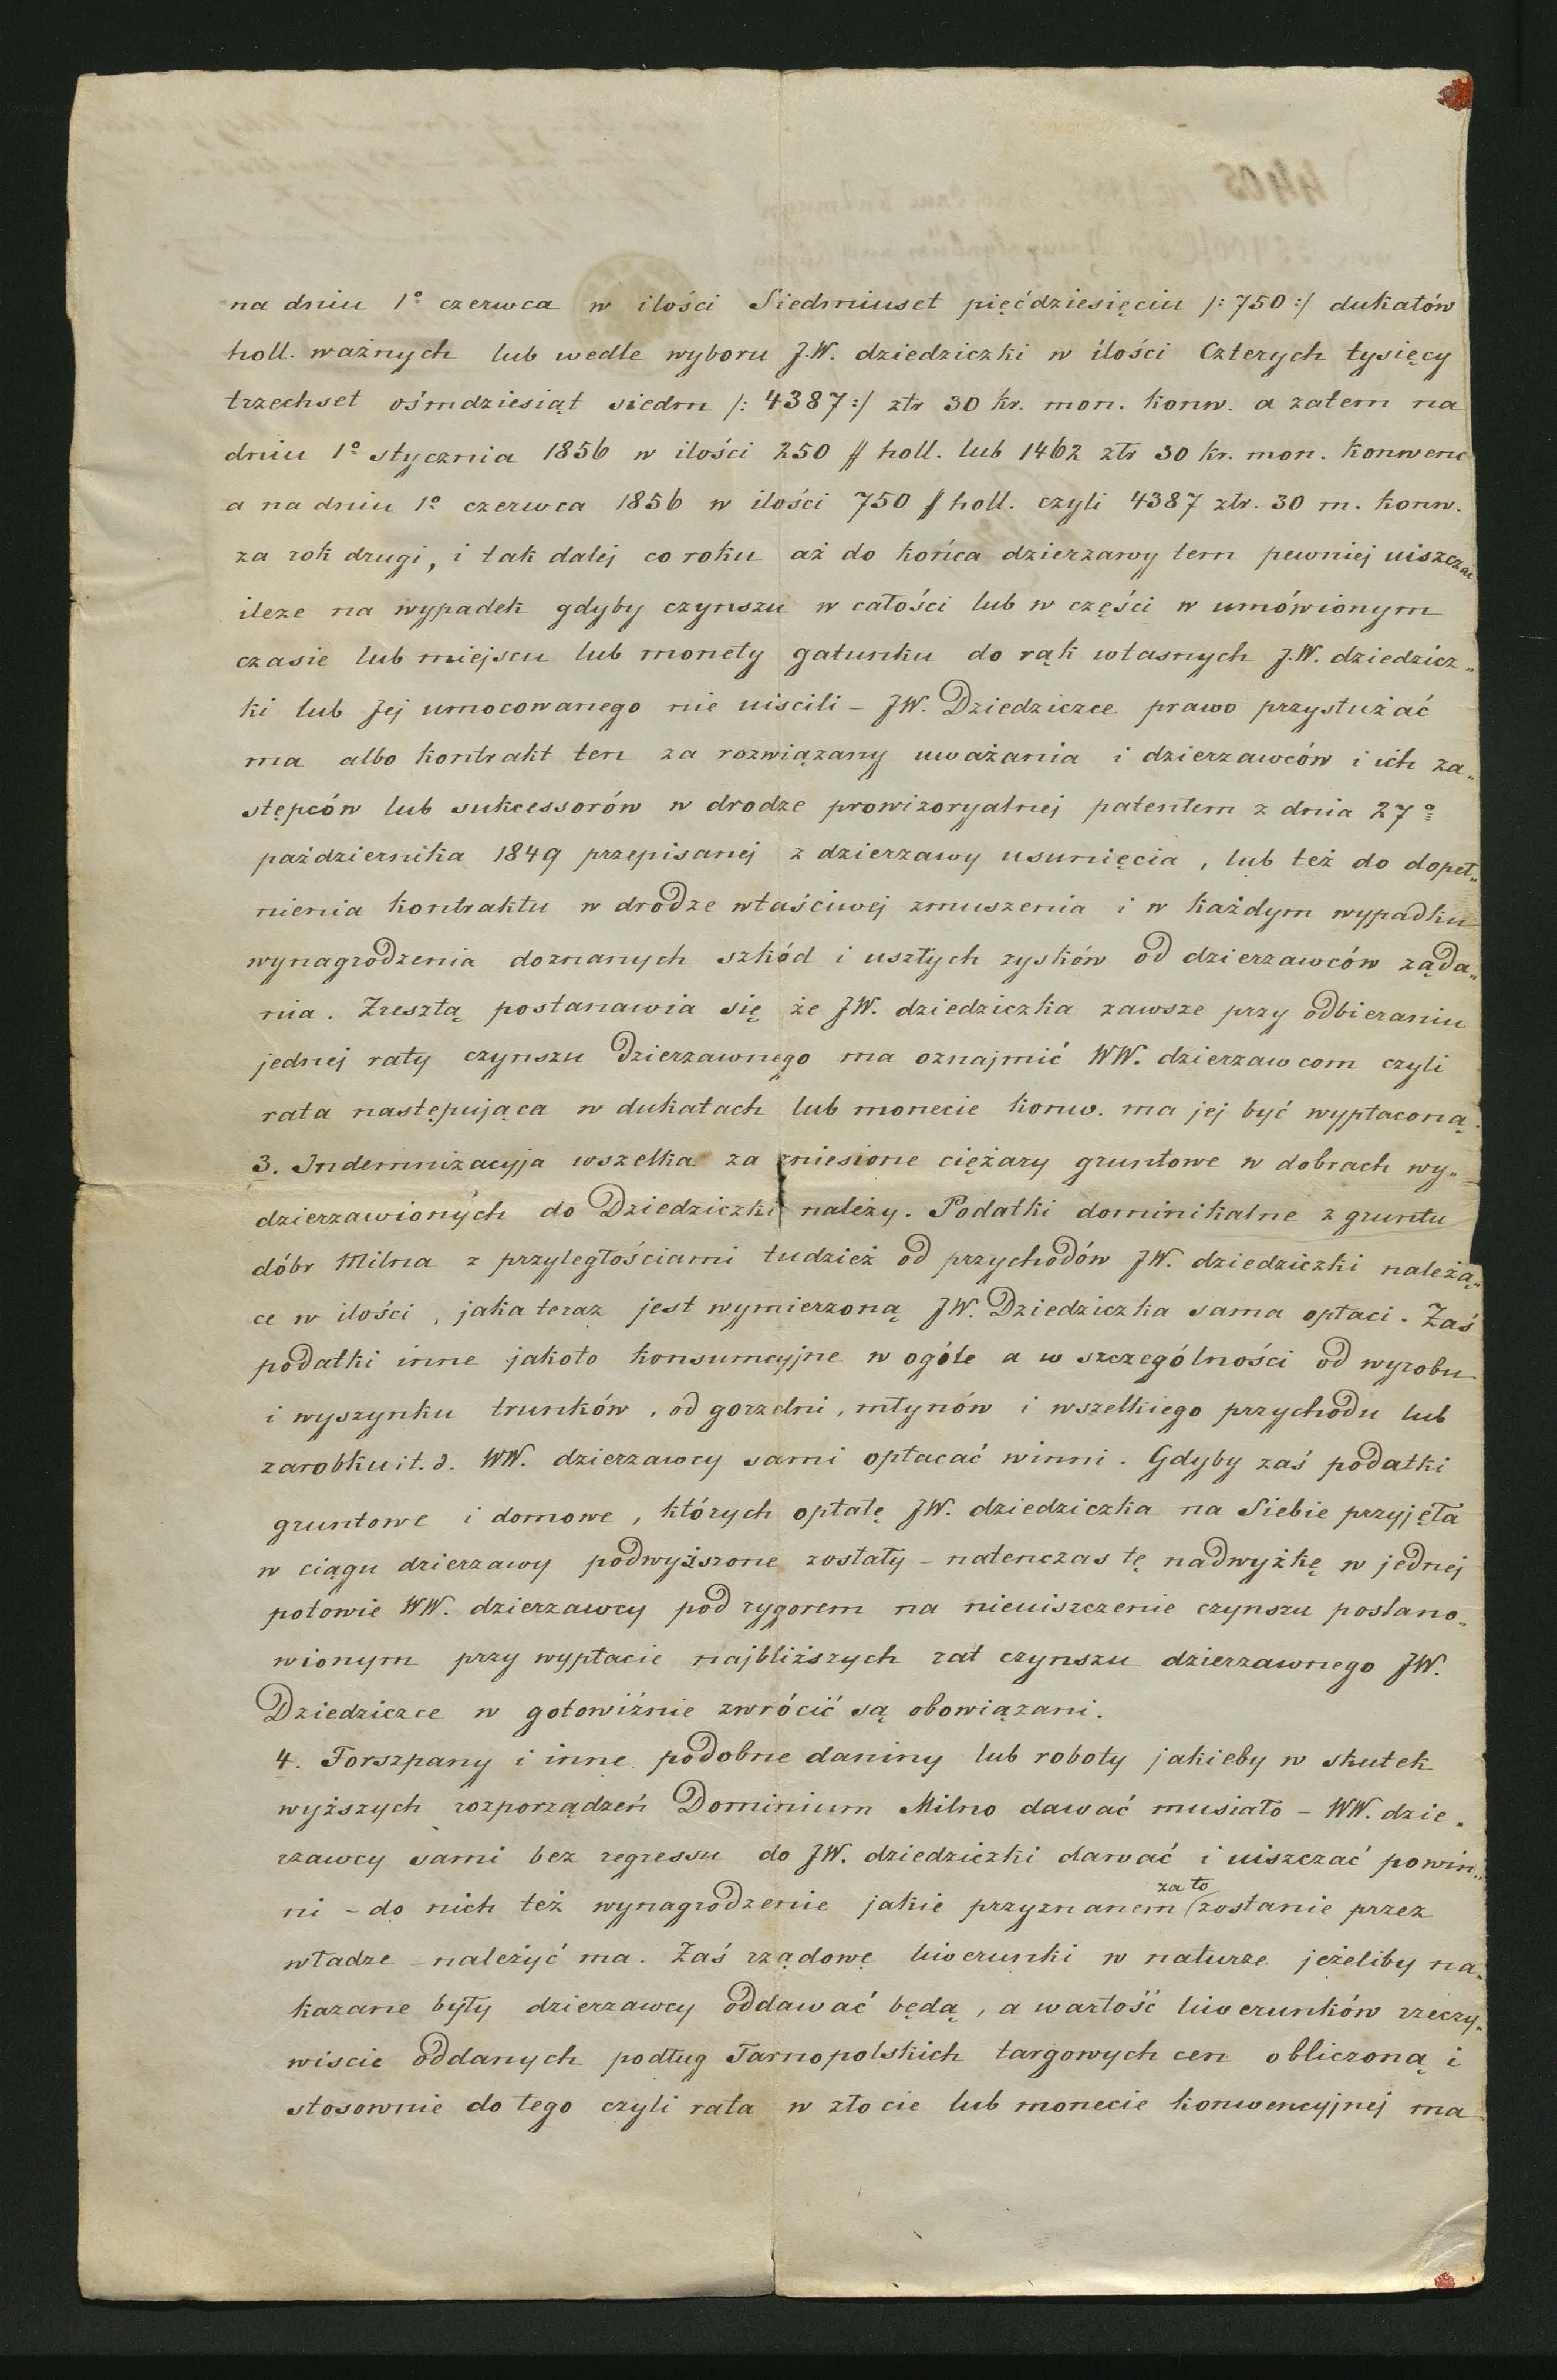 na dniu 1º czerwca w ilości Siedmiuset pięćdziesięciu /: 750 :/ dukatów
holl. ważnych lub wedle wyboru J.W. dziedziczki w ilości Czterych tysięcy
trzechset ośmdziesiąt siedm /: 4387 :/ złr 30 kr. mon. konw. a zatem na
dniu 1º stycznia 1856 w ilości 250 # holl. lub 1462 złr 30 kr. mon. konwenc
a na dniu 1º czerwca 1856 w ilości 750 # holl. czyli 4387 złr. 30 m. konw.
za rok drugi, i tak dalej co roku aż do końca dzierzawy tem pewniej uiszczac
ileze na wypadek gdyby czynszu w całości lub w części w umówionym
czasie lub miejscu lub monety gatunku do rąk własnych J.W. dziedzicz„
ki lub Jej umocowanego nie uiscili – JW. Dziedziczce prawo przysłużać
ma albo kontrakt ten za rozwiązany uważania i dzierzawców i ich za„
stępców lub sukcessorów w drodze prowizoryalnej patentem z dnia 27º
października 1849 przepisanej z dzierzawy usunięcia, lub też do dopeł„
nienia kontraktu w drodze właściwej zmuszenia i w każdym wypadku
wynagrodzenia doznanych szkód i uszłych zysków od dzierzawców ząda„
nia. Zresztą postanawia się że JW. dziedziczka zawsze przy odbieraniu
jednej raty czynszu dzierzawnego ma oznajmić WW. dzierzawcom czyli
rata następująca w dukatach lub monecie konw. ma jej być wypłaconą.
3. Indemnizacyja wszelka za zniesione ciężary gruntowe w dobrach wy„
dzierzawionych do Dziedziczki należy. Podatki dominikalne z gruntu
dóbr Milna z przyległościami tudzież od przychodów JW. dziedziczki należą„
ce w ilości, jaka teraz jest wymierzoną JW. Dziedziczka sama opłaci. Zaś
podatki inne jakoto konsumcyjne w ogóle a w szczególności od wyrobu
i wyszynku trunków, od gorzelni, młynów i wszelkiego przychodu lub
zarobku i t. d. WW. dzierzawcy sami opłacać winni. Gdyby zaś podatki
gruntowe i domowe, których opłatę JW. dziedziczka na Siebie przyjęła
w ciągu dzierzawy podwyższone zostały – natenczas tę nadwyżkę w jednej
połowie WW. dzierzawcy pod rygorem na nieuiszczenie czynszu postano„
wionym przy wypłacie najbliższych rat czynszu dzierzawnego JW.
Dziedziczce w gotowiźnie zwrócić są obowiązani.
4. Forszpany i inne podobne daniny lub roboty jakieby w skutek
wyższych rozporządzeń Dominium Milno dawać musiało – WW. dzie„
rzawcy sami bez regressu do JW. dziedziczki dawać i uiszczać powin„
ni – do nich też wynagrodzenie jakie przyznanem za to zostanie przez
władze – należyć ma. Zaś rządowe liwerunki w naturze jeżeliby na„
kazane były dzierzawcy oddawać będą, a wartość liwerunków rzeczy„
wiscie oddanych podług Tarnopolskich targowych cen obliczoną i
stosownie do tego czyli rata w złocie lub monecie konwencyjnej ma